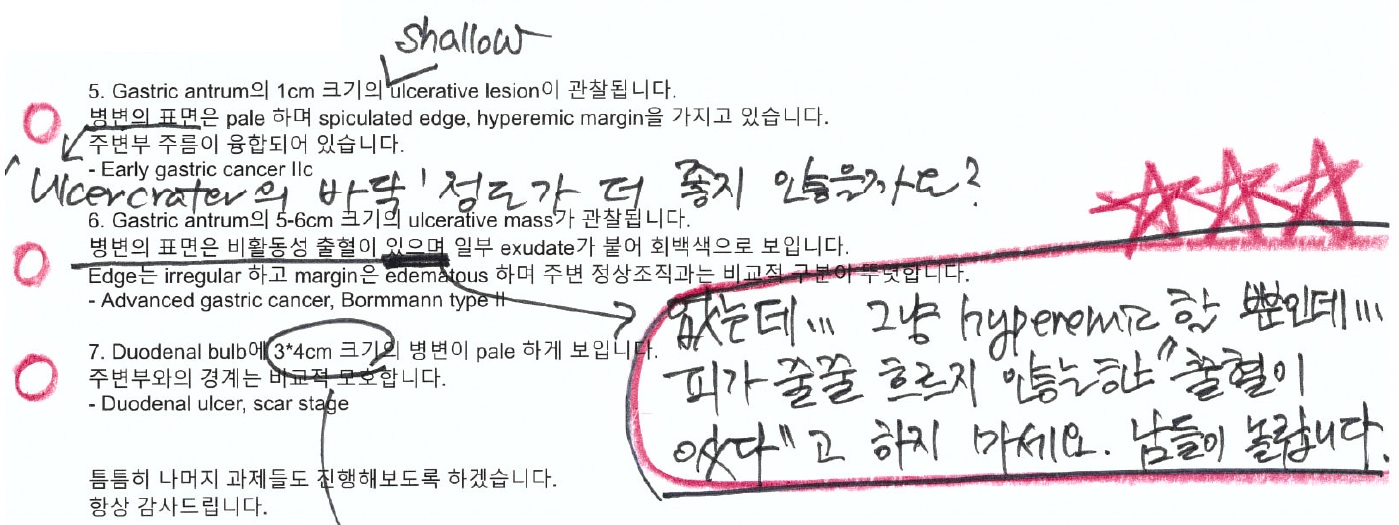 shallow
5. Gastric antrum의 1cm 크기의 ulcerative lesion이 관찰됩니다.
병변의 표면은 pale 하며 spiculated edge, hyperemic margin을 가지고 있습니다.
주변부 주름이 융합되어 있습니다.
- Early gastric cancer IIc
'Ulcer crater의 바닥' 정도가 더 좋지 않을까요?
6. Gastric antrum의 5-6cm 크기의 ulcerative mass가 관찰됩니다.
병변의 표면은 비활동성 출혈이 있으며 일부 exudate가 붙어 회백색으로 보입니다.
Edge는 irregular 하고 margin은 edematous 하며 주변 정상조직과는 비교적 구분이 뚜렷합니다.
- Advanced gastric cancer, Bormmann type II
없는데... 그냥 hyperemic 한 뿐인데...
피가 줄줄 흐르지 않는한 "출혈이
있다"고 하지 마세요. 남들이 놀랍니다.
7. Duodenal bulb에 3*4cm 크기의 병변이 pale 하게 보입니다.
주변부와의 경계는 비교적 모호합니다.
- Duodenal ulcer, scar stage
틈틈히 나머지 과제들도 진행해보도록 하겠습니다.
항상 감사드립니다.